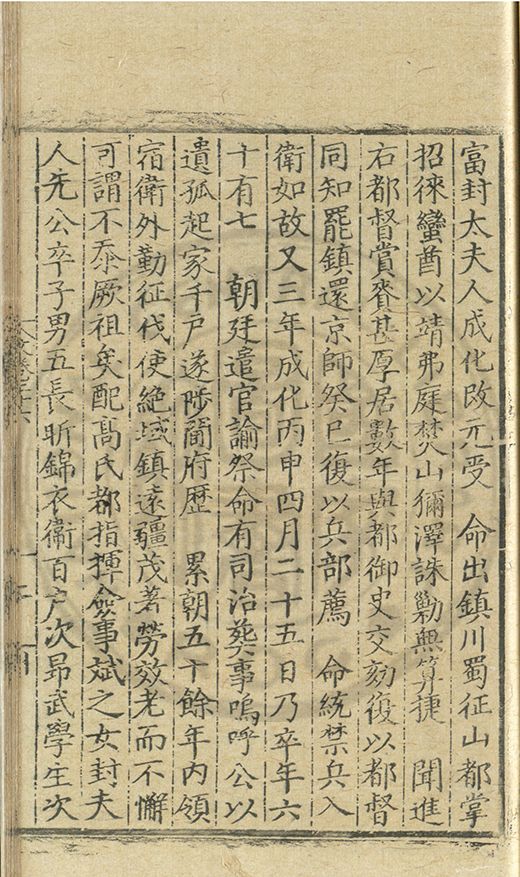 富封太夫人成化改元受　命出鎮川蜀征山都掌
招徠蠻酋以靖弗庭焚山獮澤誅勦無算捷　聞進
右都督賞賚甚厚居數年與都御史交劾復以都督
同知罷鎮還京師癸巳復以兵部薦　命統禁兵入
衛如故又三年成化丙申四月二十五日乃卒年六
十有七　朝廷遣官諭祭命有司治葬事嗚呼公以
遺孤起家千戶遂陟閫府歷　累朝五十餘年内領
宿衛外勤征伐使絶域鎮遠疆茂著勞效老而不懈
可謂不忝厥祖矣配髙氏都指揮僉事斌之女封夫
人先公卒子男五長昕錦衣衛百户次昴武學生次